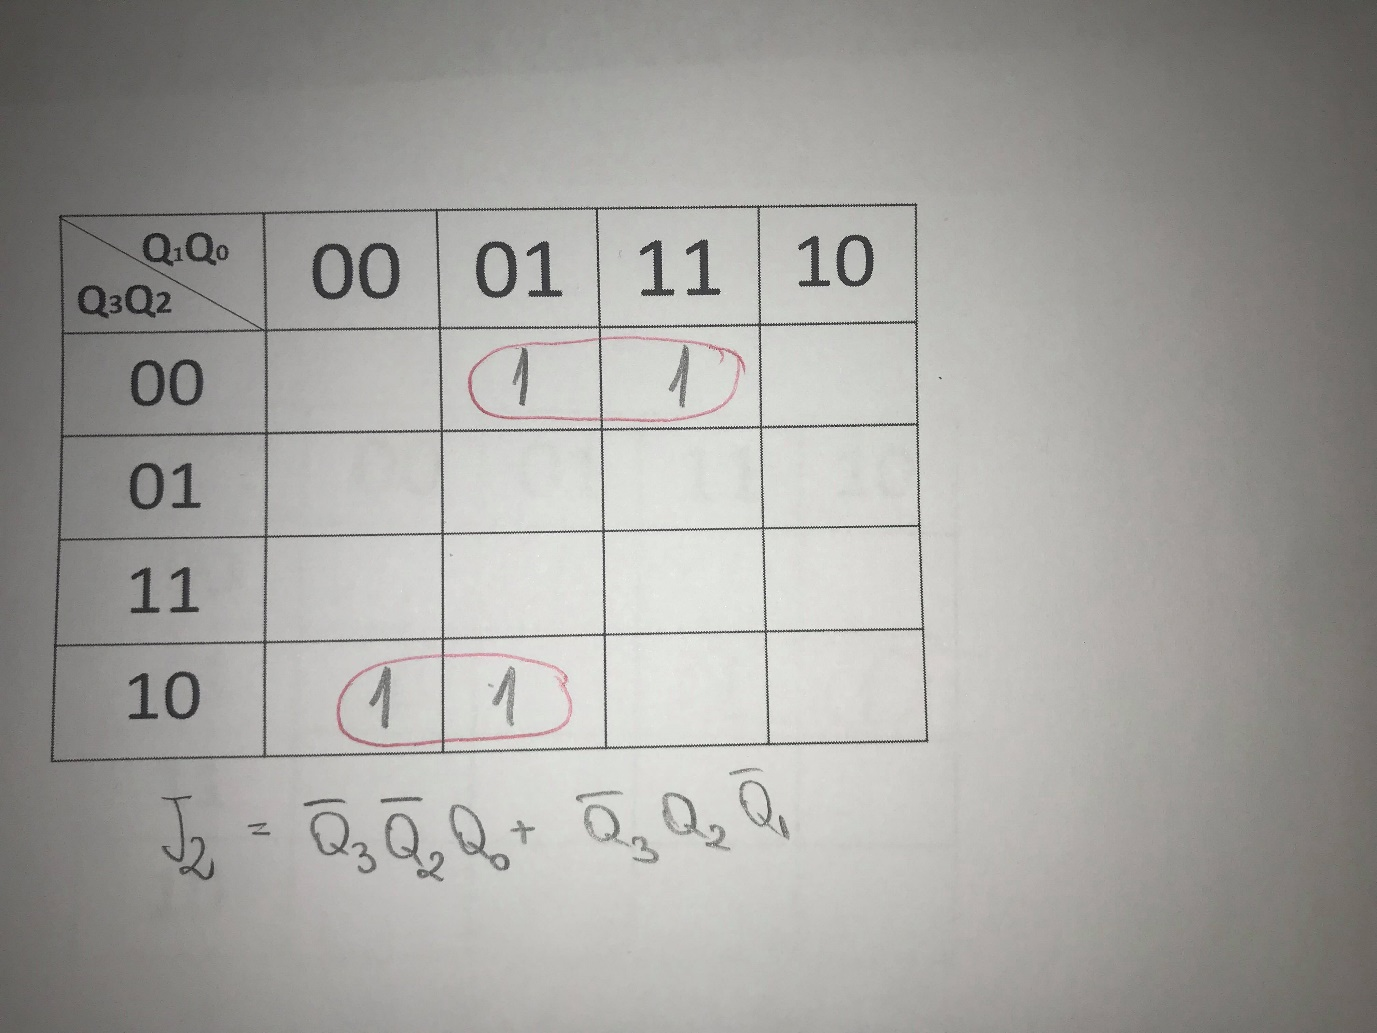 Q₁Q₀
Q₃Q₂
00 01 11 10
00 1 1
01
11
10 1 1
J₂ = Q̅₃ Q̅₂ Q₀ + Q̅₃ Q₂ Q̅₁